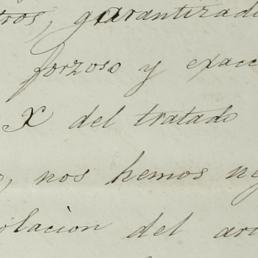 tros, garantizad
forzoso y exac
X del tratado
, nos hemos ne
olaciòn del ar